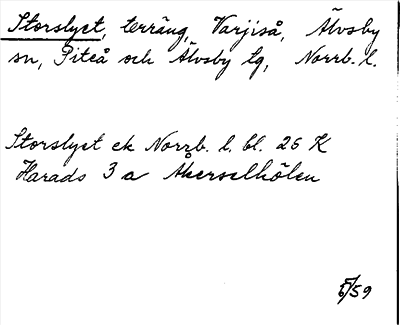 Storslyet, terräng, Varjiså, Älvsby
sn, Piteå och Älvsby tg, Norrb. l.
Storslyet ek Norrb. l. bl. 26 K
Harads 3 a Åkerselhölen
/59